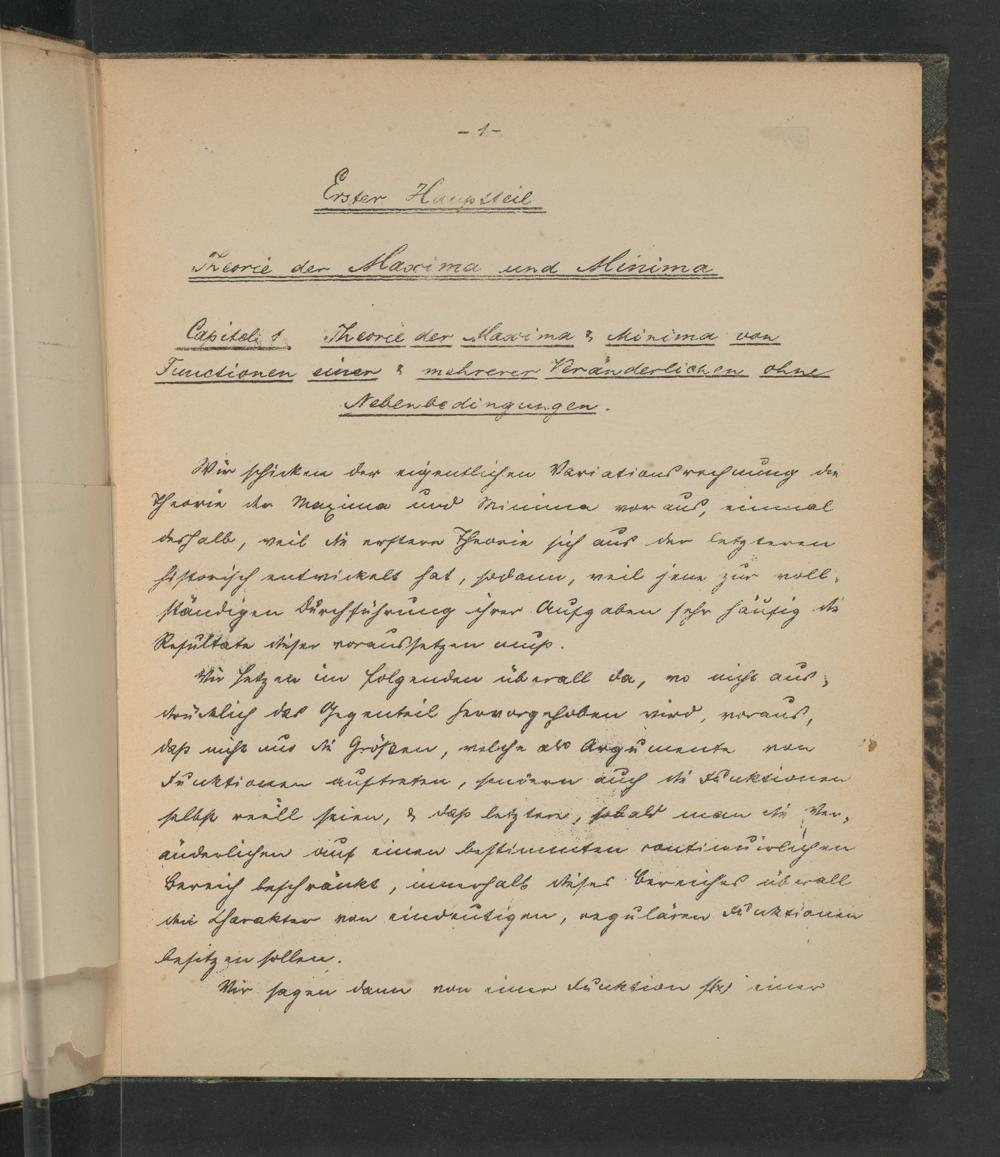 - 1 -
Erster Hauptteil
Theorie der Maxima und Minima
Capitel 1 Theorie der Maxima & Minima von
Functionen einer & mehrerer Veränderlichen ohne
Nebenbedingungen.
Wir schicken der eigentlichen Variationsrechnung die
Theorie der Maxima und Minima voraus, einmal
deshalb, weil die erstere Theorie sich aus der letzteren
historisch entwickelt hat, sodann, weil jene zur voll-
ständigen Durchführung ihrer Aufgaben sehr häufig die
Resultate dieser voraussetzen muß.
Wir setzen im folgenden überall da, wo nicht aus-
drücklich das Gegenteil hervorgehoben wird, voraus,
daß nicht nur die Größen, welche als Argumente von
Funktionen auftreten, sondern auch die Funktionen
selbst reell seien, & daß letztere, sobald man die Ver-
änderlichen auf einen bestimmten continuirlichen
Bereich beschränkt, innerhalb dieses Bereiches überall
den Charakter von eindeutigen, regulären Funktionen
besitzen sollen.
Wir sagen dann von einer Funktion f(x) einer